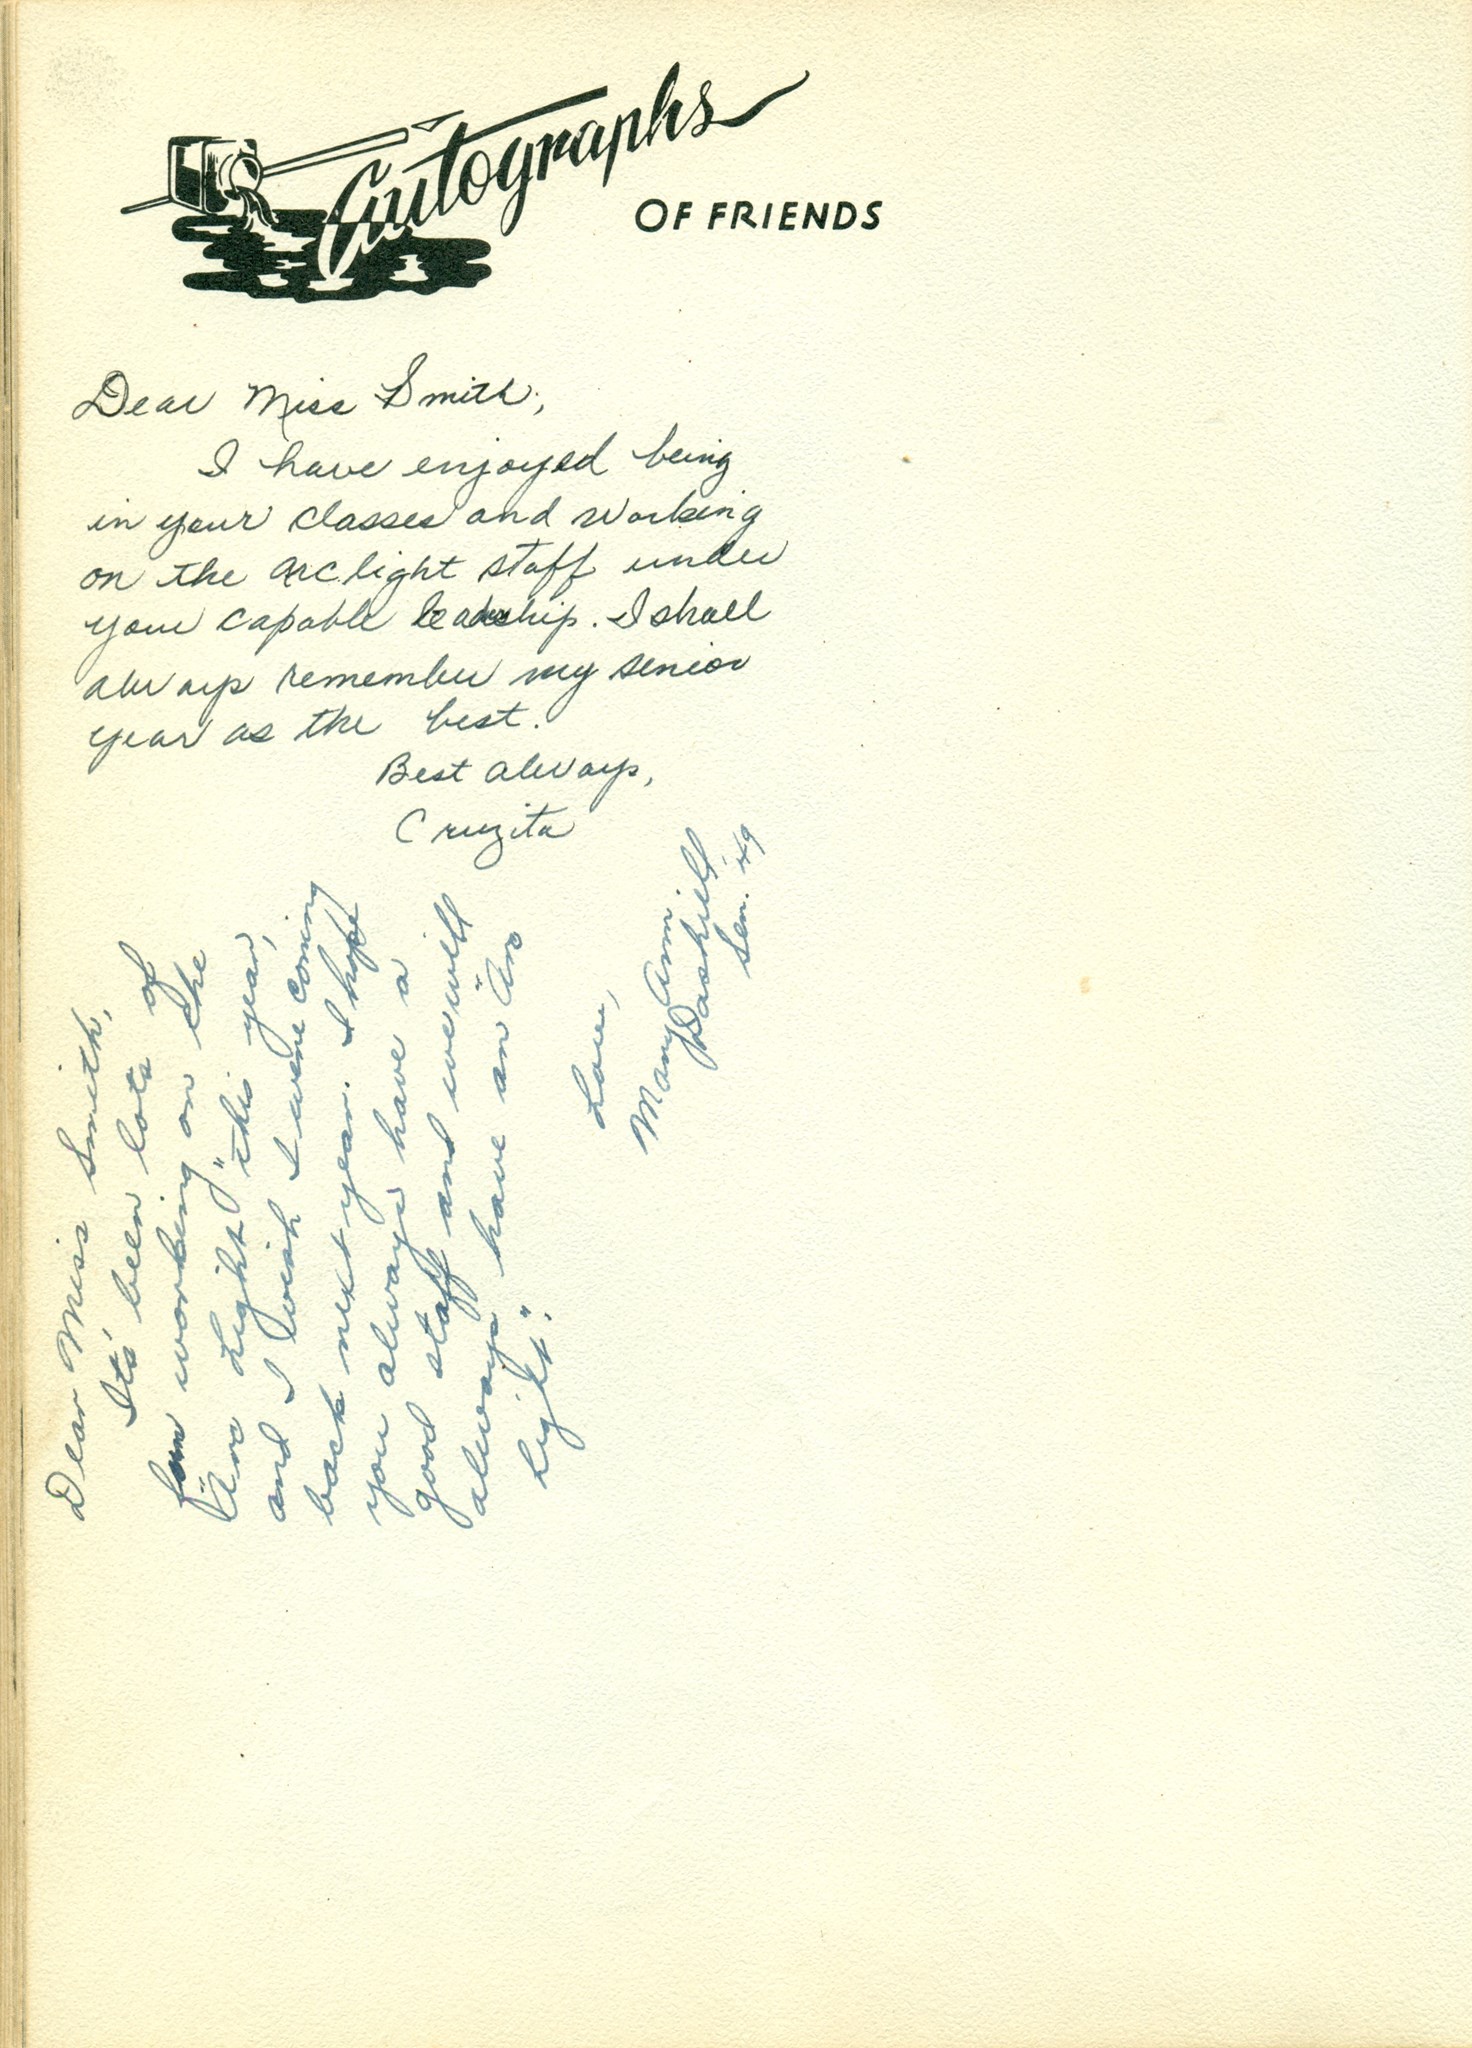 Autographs
OF FRIENDS
Dear Miss Smith,
I have enjoyed being
in your classes and working
on the arclight staff under
your capable leadership. I shall
always remember my senior
year as the best.
Best always,
Cruzita
Dear Miss Smith,
It's been lots of
fun working on the
"Arc Light" this year,
and I wish I were coming
back next year. I hope
you always have a
good staff and we will
always have an "Arc
Light".
Love,
Mary Ann
Dashiell
Sen. '49